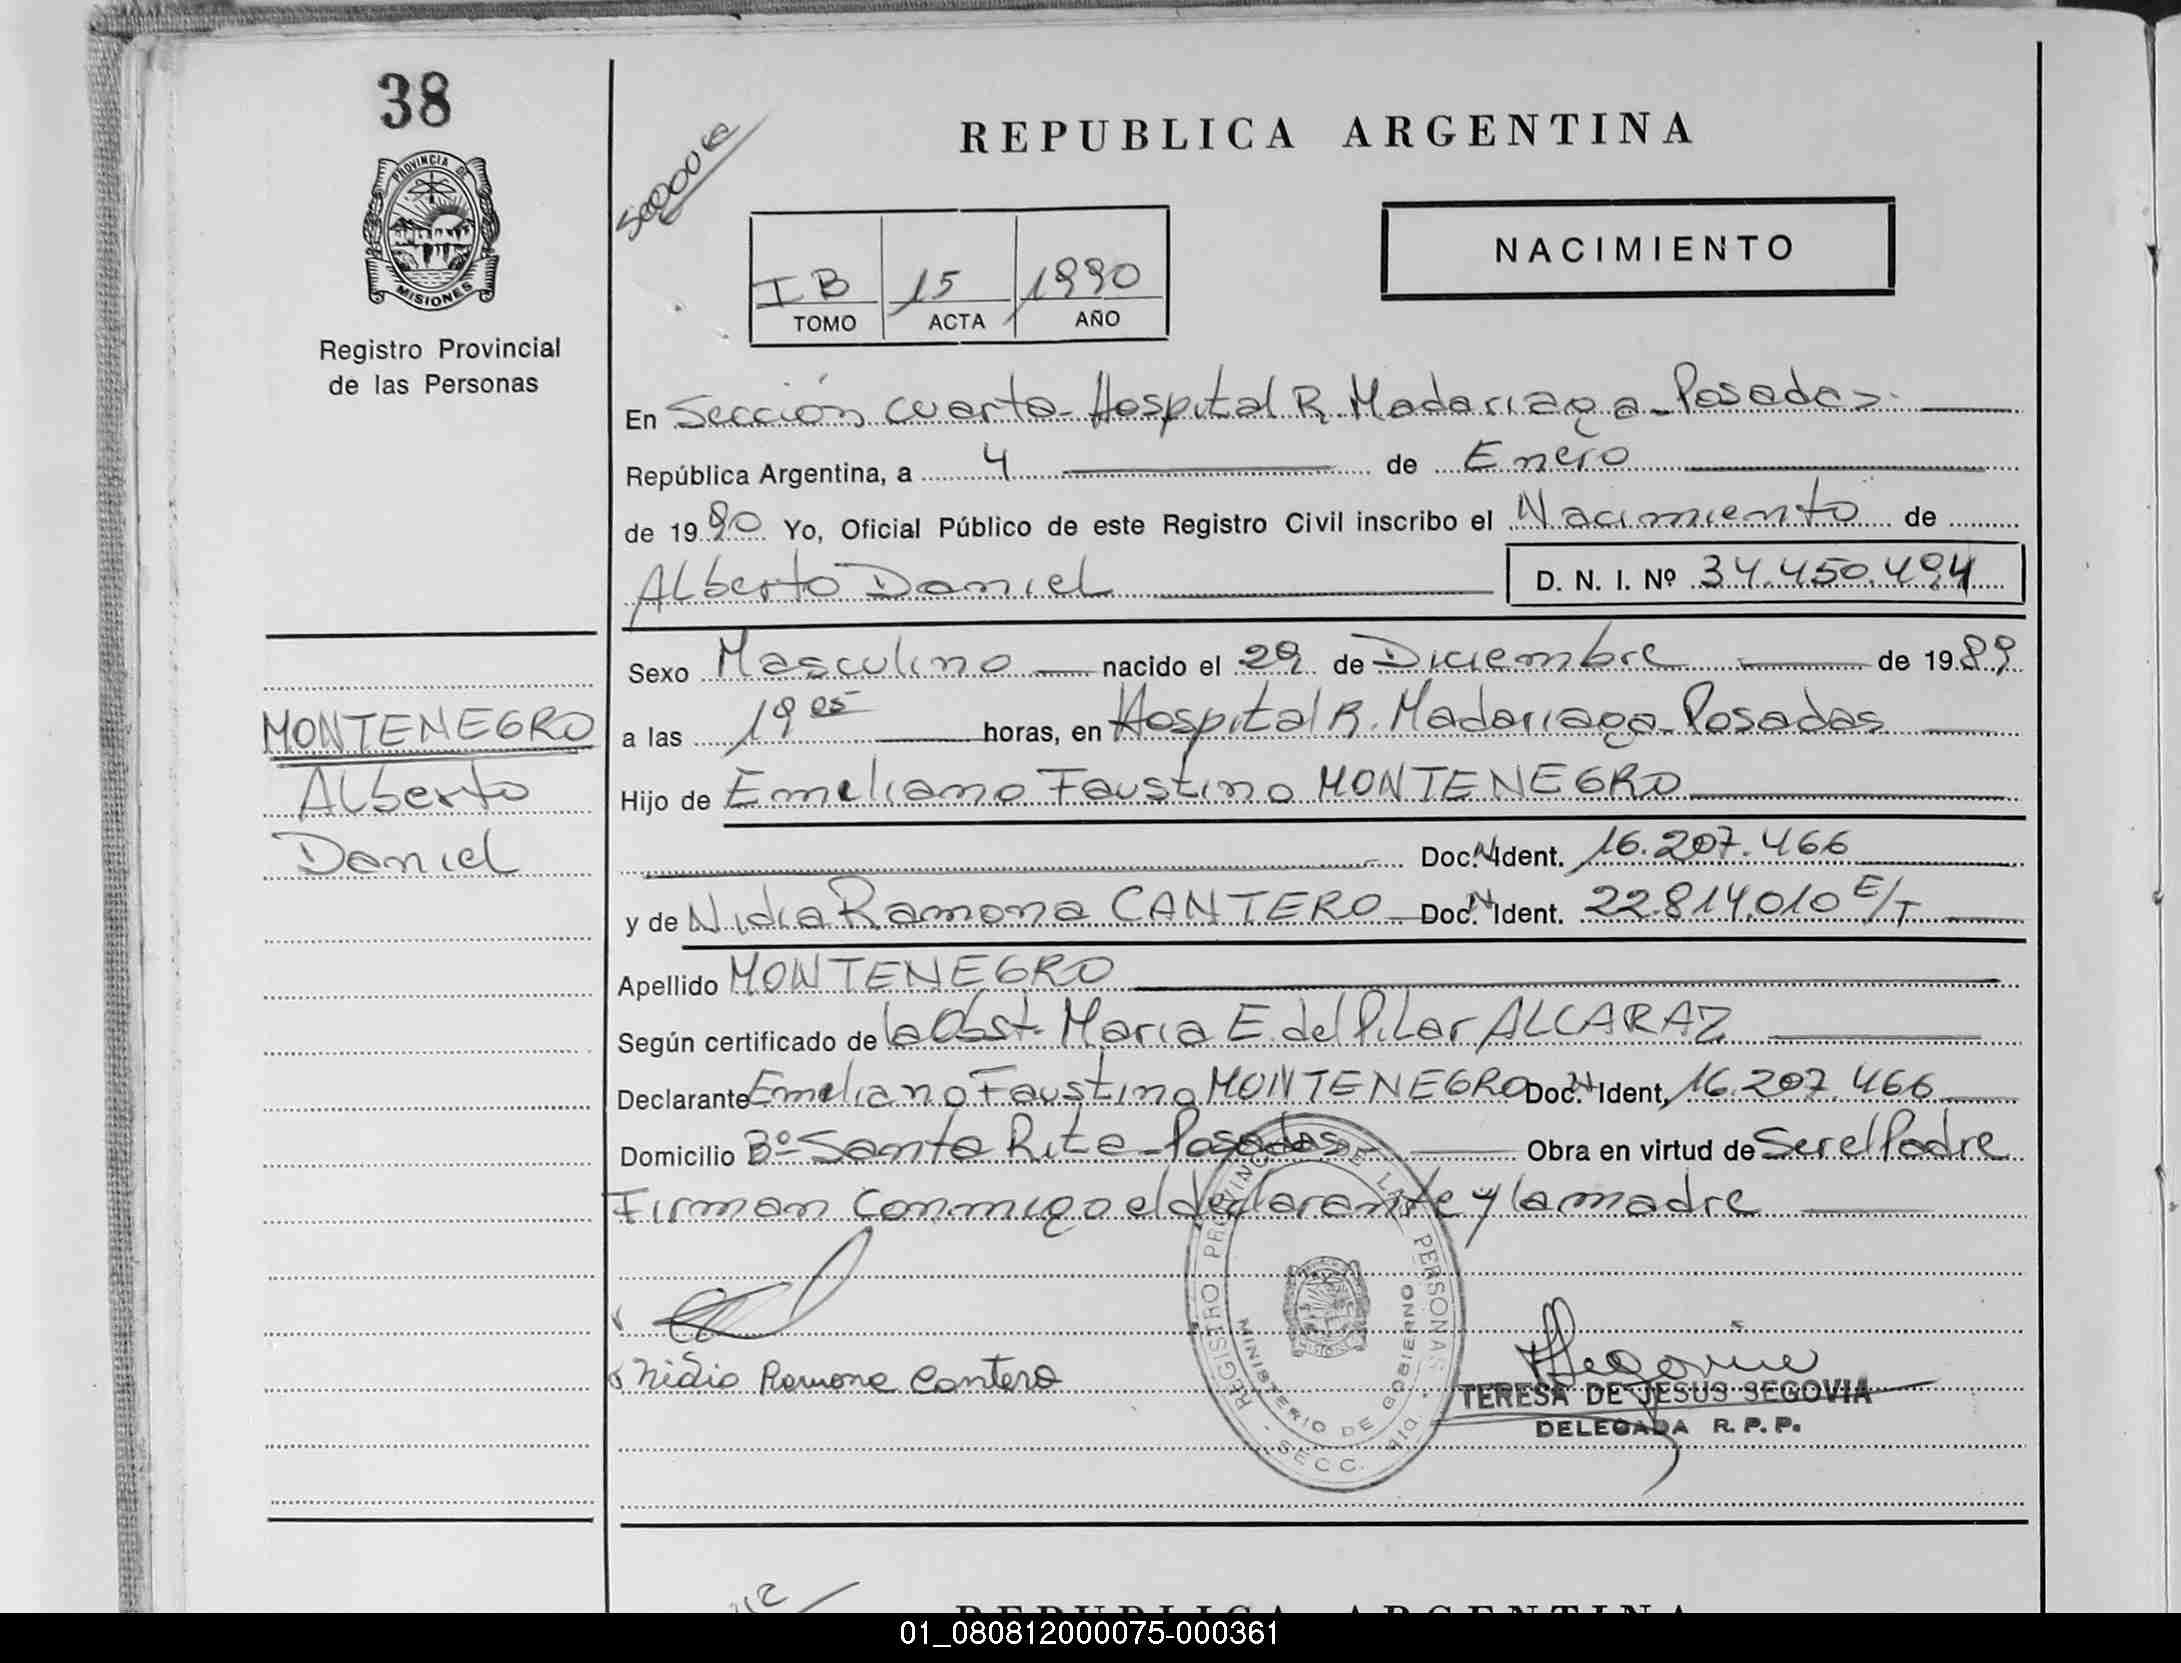 38
PROVINCIA DE
MISIONES
Registro Provincial
de las Personas
REPUBLICA ARGENTINA
NACIMIENTO
I B 15 1990
TOMO ACTA AÑO
En Sección cuarta - Hospital R. Madariaga - Posadas.
República Argentina, a 4 de Enero
de 1990 Yo, Oficial Público de este Registro Civil inscribo el Nacimiento de
Alberto Daniel D. N. I. Nº 34.450.494
Sexo Masculino nacido el 29 de Diciembre de 1989
a las 19 05 horas, en Hospital R. Madariaga - Posadas
Hijo de Emeliano Faustino MONTENEGRO
Doc. N Ident. 16.207.466
y de Nidia Ramona CANTERO Doc. N Ident. 22.814.010 E/T
Apellido MONTENEGRO
Según certificado de la Obst. Maria E. del Pilar ALCARAZ
Declarante Emeliano Faustino MONTENEGRO Doc. N Ident. 16.207.466
Domicilio Bº Santa Rita - Posadas Obra en virtud de Ser el Padre
Firman conmigo el declarante y la madre
MONTENEGRO
Alberto
Daniel
Nidia Ramona Cantero
REGISTRO PROVINCIAL DE LAS PERSONAS
MINISTERIO DE GOBIERNO
SECC.
Segovia
TERESA DE JESUS SEGOVIA
DELEGADA R. P. P.
REPUBLICA ARGENTINA
01_080812000075-000361